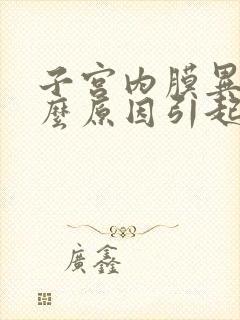 子宫内膜異
麼原因引起
廣鑫